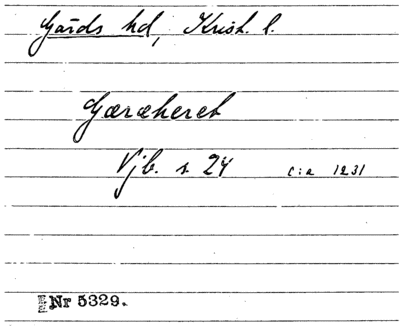 Gärds hd, Krist. l.
Gæræheret
Vjb. s 24 c:a 1231
Nr 5329.